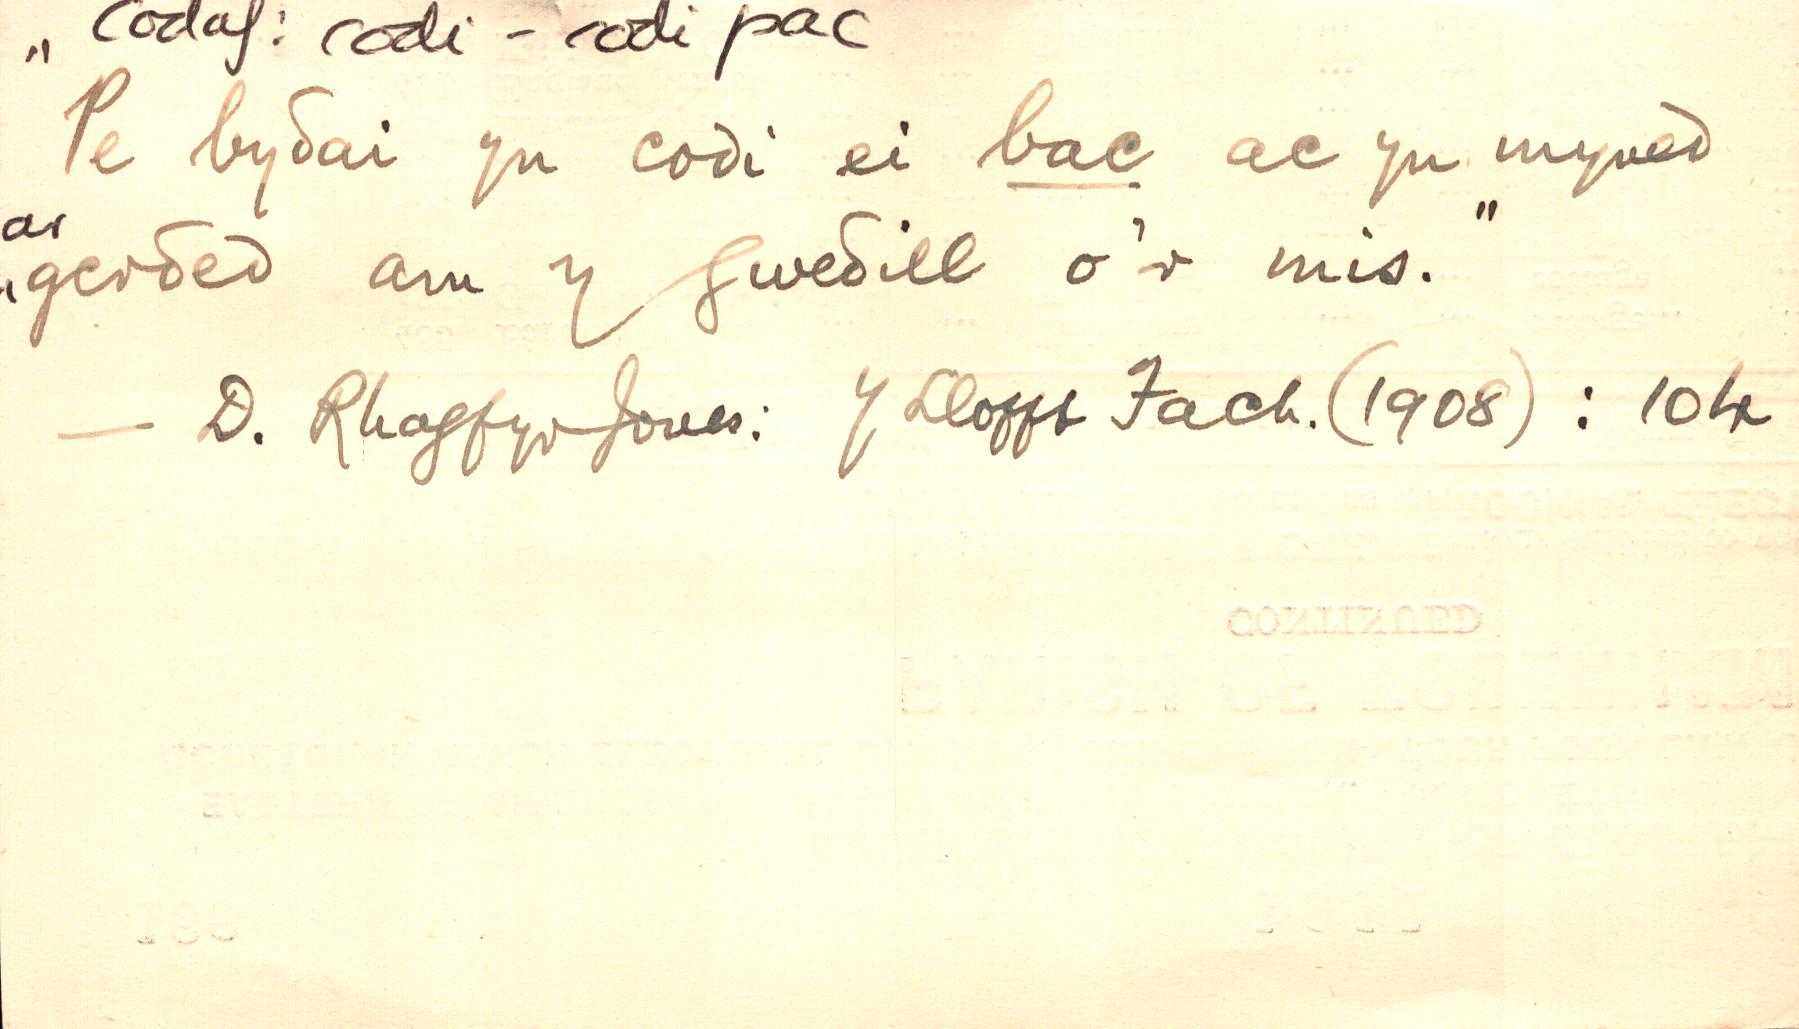 codaf: codi - codi pac
"Pe byδai yn codi ei bac ac yn myned
ar
gerδed am y gweδill o'r mis."
— D. Rhagfyr Jones: Y Lloffs Fach. (1908) : 104
CONTINUED